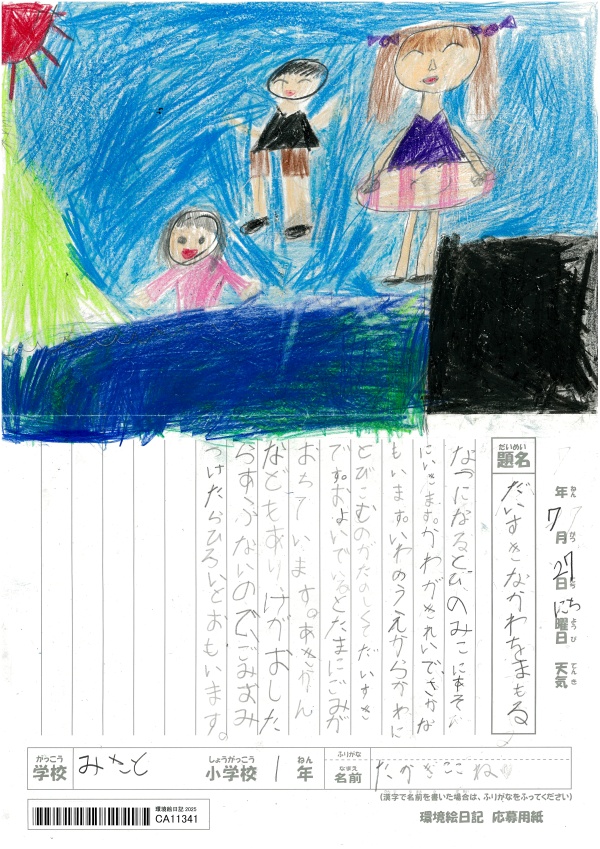 年 7月 27日 にち曜日 天気
ねん がつ にち ようび てんき
だいめい
題名
だいすきなかわをまもる
なつになるとひのみこにあそび
にいきます。かわがきれいでさかな
もいます。いわのうえからかわに
とびこむのがたのしくてだいすき
です。およいでいるとたまにごみが
おちています。あきかん
などもありけがおした
らあぶないのでごみおみ
つけたらひろいとおもいます。
がっこう
学校
みさと
しょうがっこう
小学校
1
ねん
年
ふりがな
なまえ
名前
たかぎここね
(漢字で名前を書いた場合は、ふりがなをふってください)
環境絵日記 2025
CA11341
環境絵日記 応募用紙